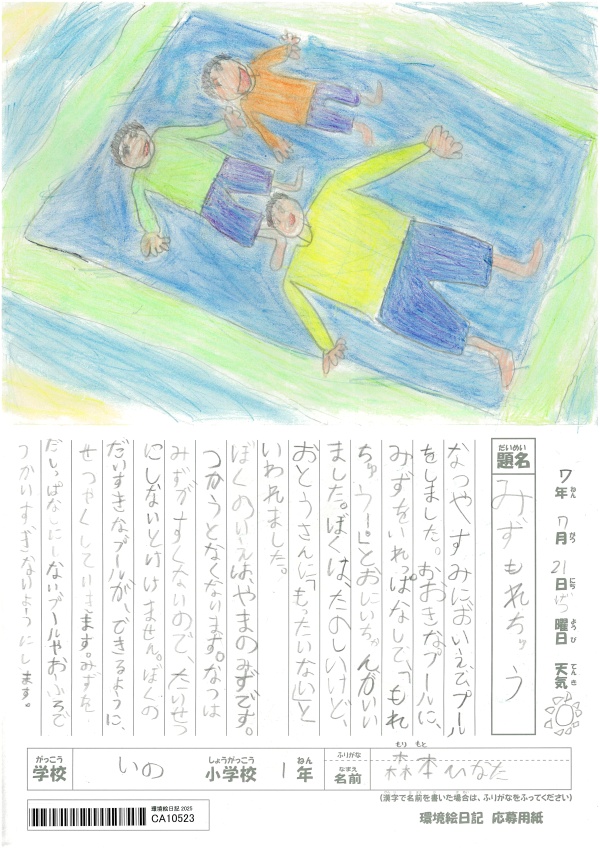 7年 7月 21日 げつ曜日 天気
ねん がつ にち ようび てんき
だいめい
題名
みずもれちゅう
なつやすみにおいえでプール
をしました。おおきなプールに、
みずをいれっぱなしで、「もれ
ちゅうー。」とおにいちゃんがいい
ました。ぼくは、たのしいけど、
おとうさんに「もったいない」と
いわれました。
ぼくのいえは、やまのみずです。
つかうとなくなります。なつは
みずがすくないので、たいせつ
にしないといけません。ぼくの
だいすきなプールが、できるように、
せつやくしていきます。みずを
だしっぱなしにしないプールやおふろで
つかいすぎないようにします。
がっこう しょうがっこう ねん ふりがな もり もと
学校 いの 小学校 1年 なまえ 名前 森本ひなた
(漢字で名前を書いた場合は、ふりがなをふってください)
環境絵日記 応募用紙
環境絵日記 2025
CA10523